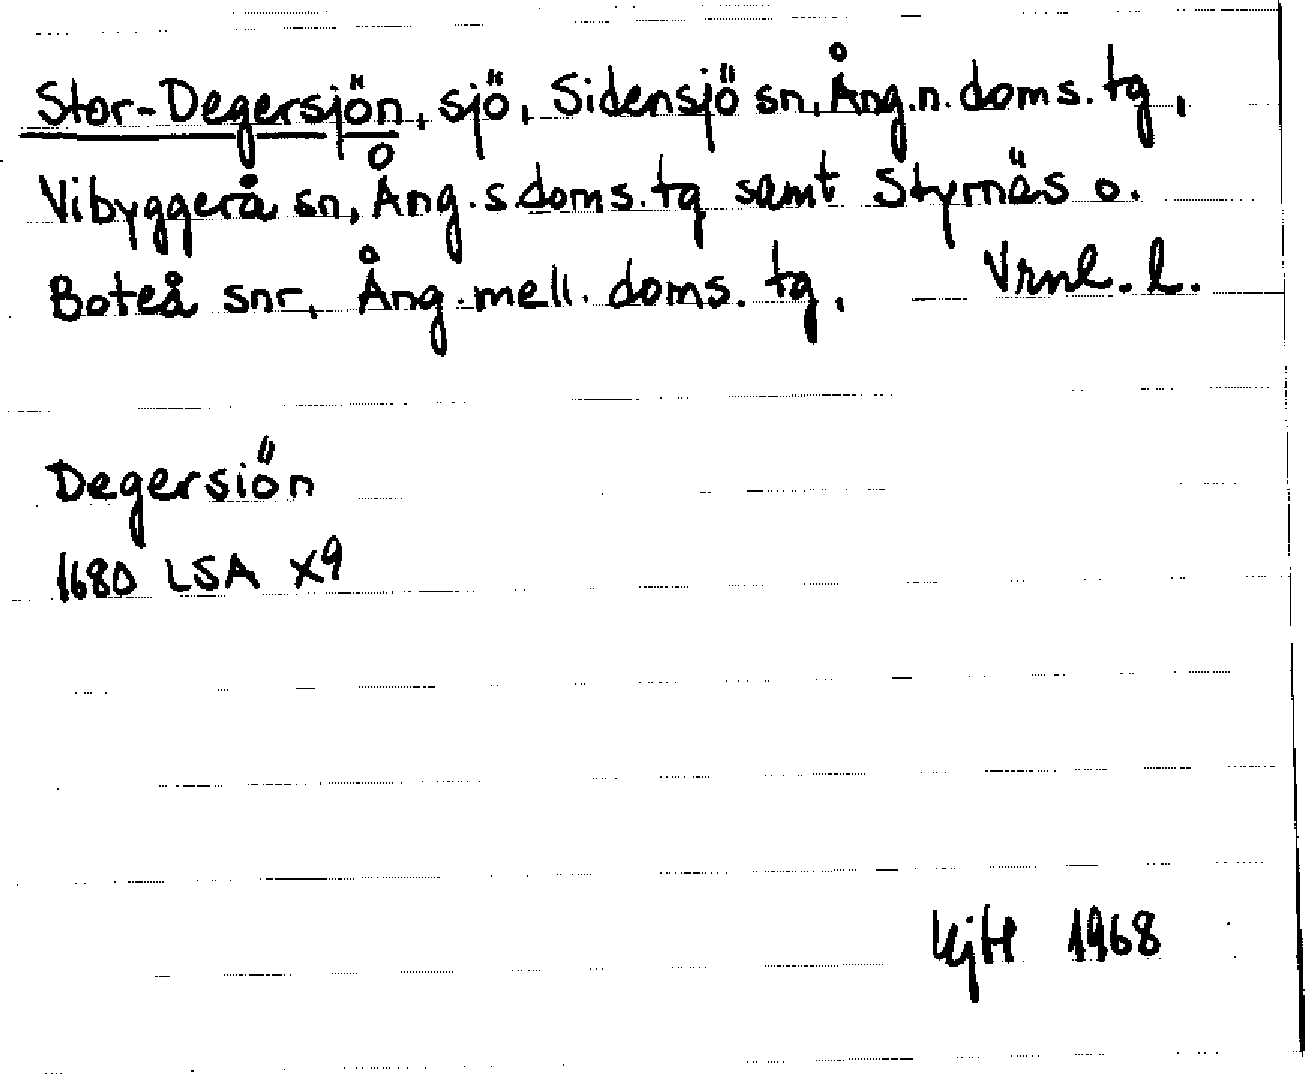 Stor-Degersjön, sjö, Sidensjö sn, Ång. n. doms. tg,
Vibyggerå sn, Ång. s. doms. tg samt Styrnäs o.
Boteå snr, Ång. mell. doms. tg. Vrnl. l.
Degersiön
1680 LSA X9
KjH 1968